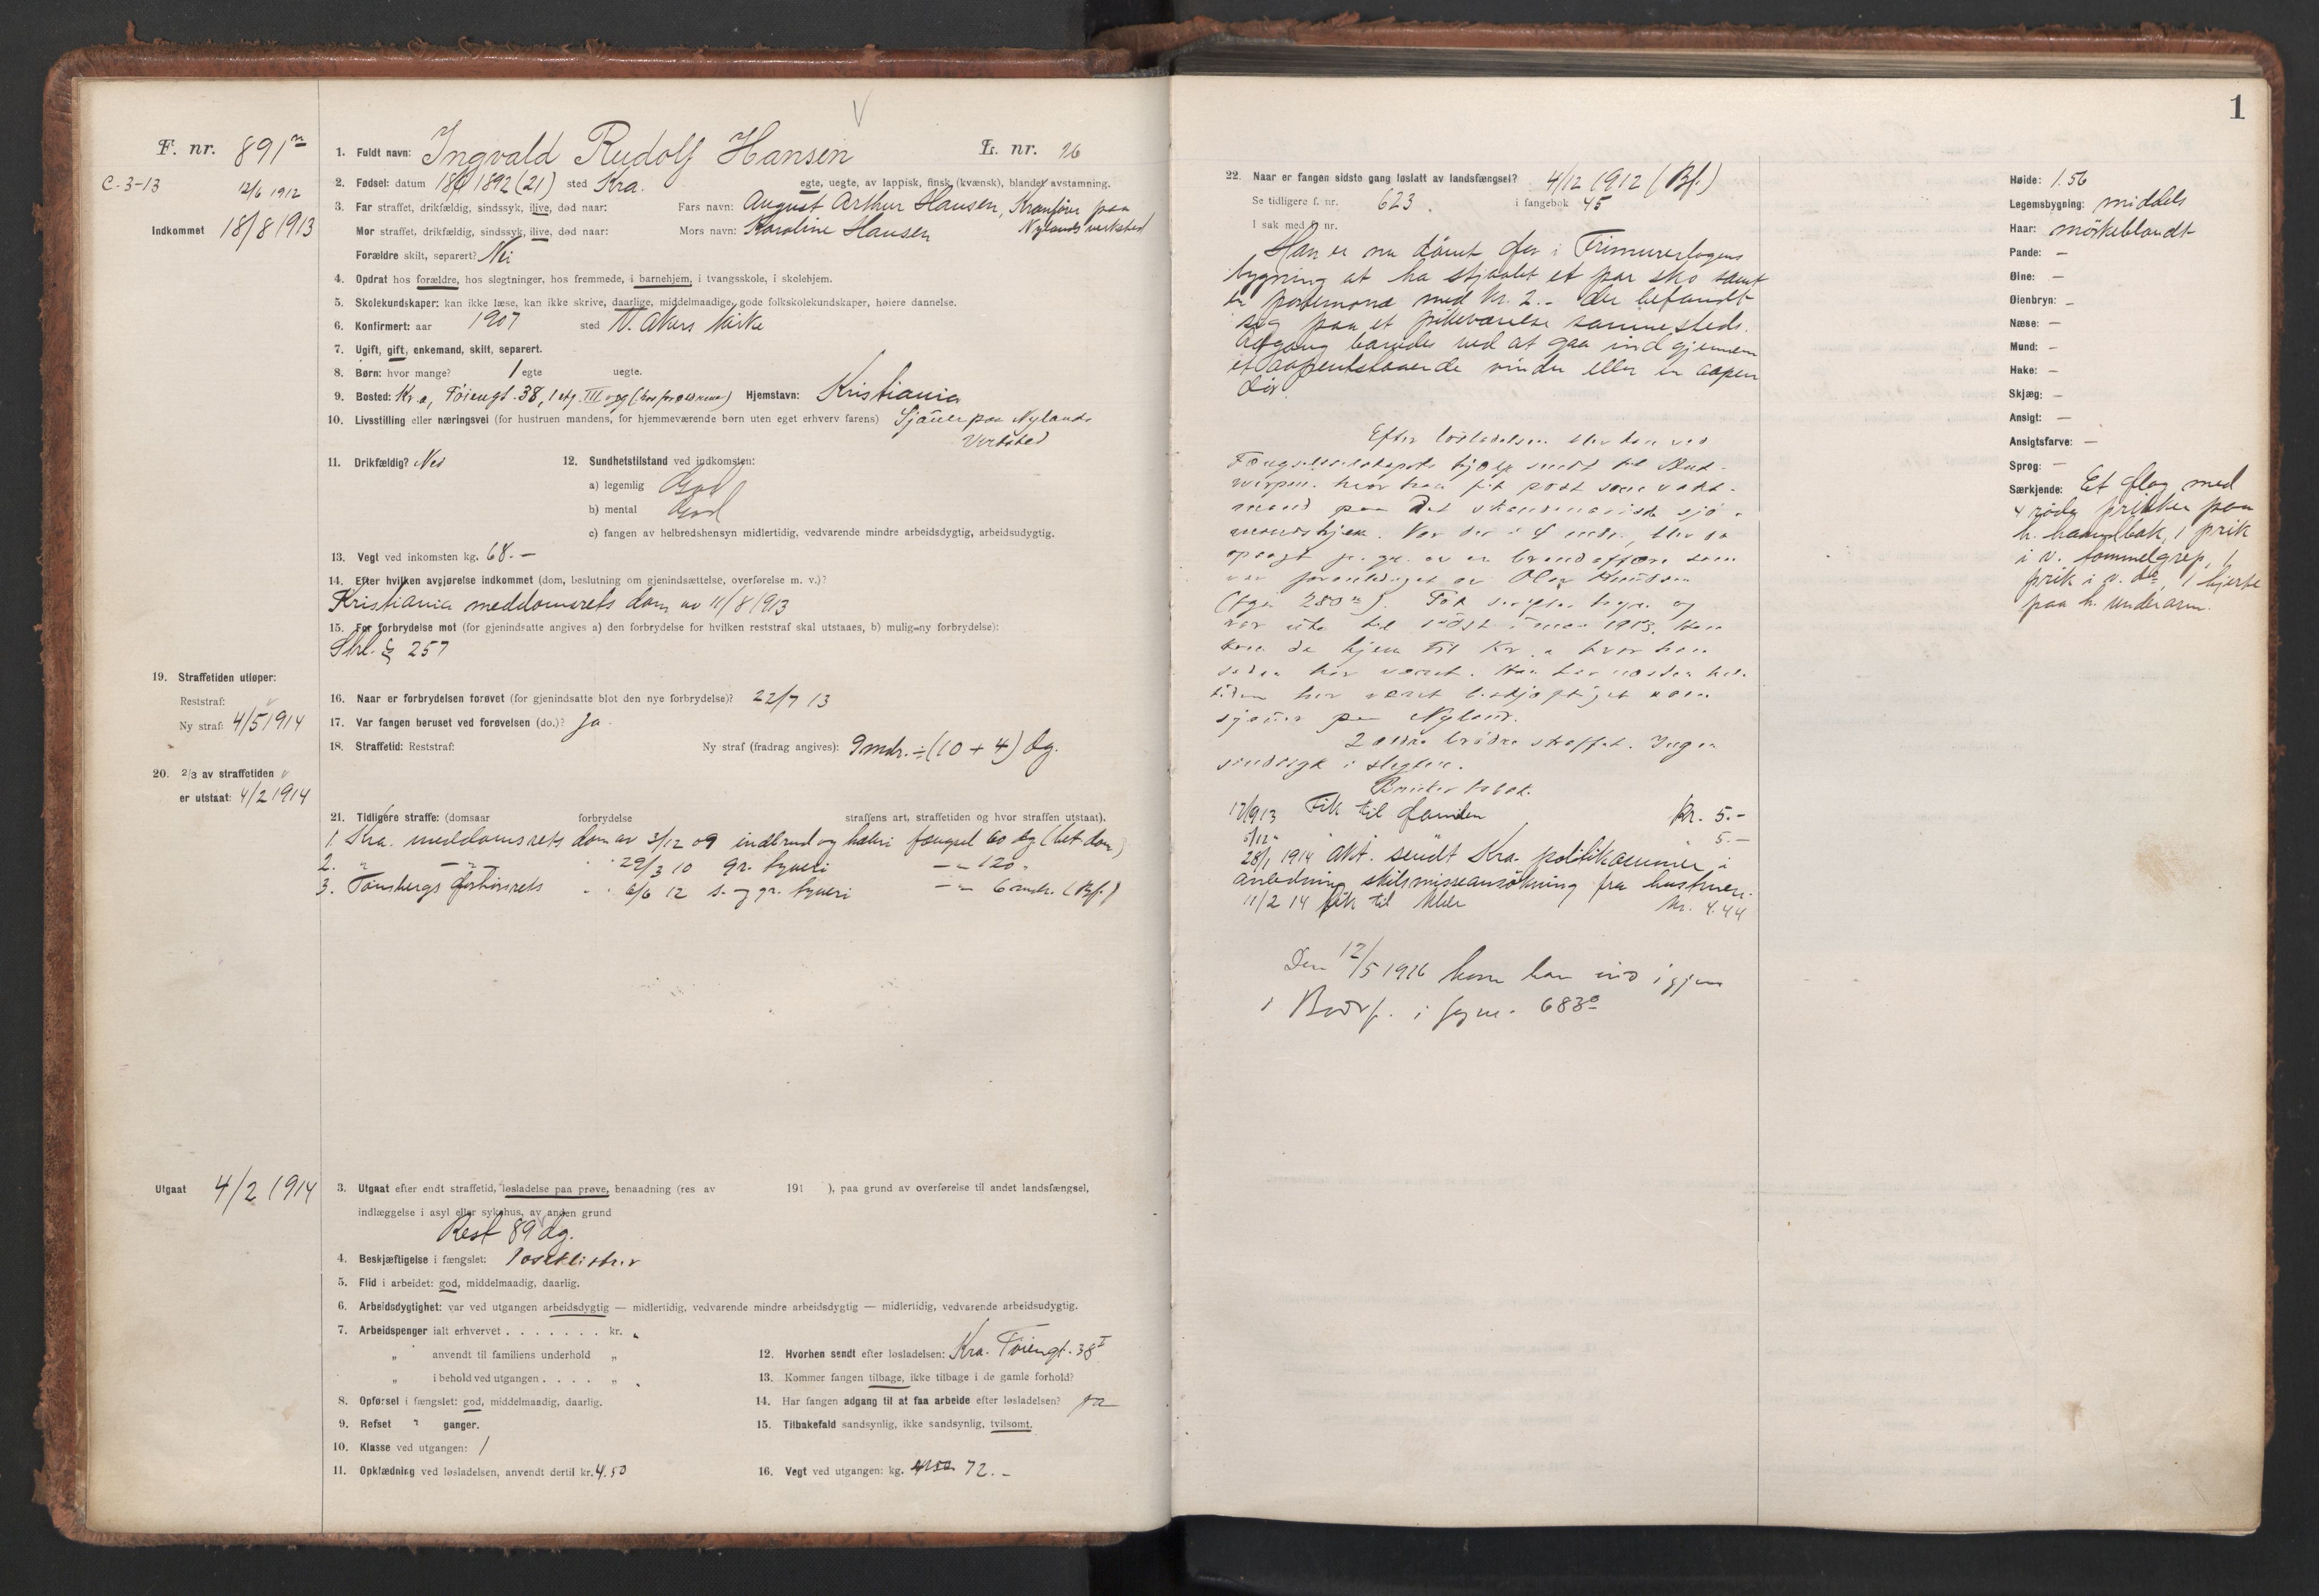 F. nr. 891
C-3-13
12/6 1912
Indkommet 18/8 1913
1. Fuldt navn: Ingvald Rudolf Hansen L. nr. 26
2. Fødsel: datum 1892 (21) sted Kra. egte, uegte, av lappisk, finsk (kvænsk), blandet avstamning.
3. Far straffet, drikfældig, sindssyk, ilive, død naar: Fars navn: August Arthur Hansen, Kranfører paa
Mor straffet, drikfældig, sindssyk, ilive, død naar: Mors navn: Karoline Hansen Nylands verksted
Forældre skilt, separert? Nei
4. Opdrat hos forældre, hos slegtninger, hos fremmede, i barnehjem, i tvangsskole, i skolehjem.
5. Skolekundskaper: kan ikke læse, kan ikke skrive, daarlige, middelmaadige, gode folkskolekundskaper, høiere dannelse.
6. Konfirmert: aar 1907 sted V. Akers kirke
7. Ugift, gift, enkemand, skilt, separert.
8. Børn: hvor mange? 1 egte uegte.
9. Bosted: Kr.a, Tøiengt. 38, 1 etg. III opg (hos forældrene) Hjemstavn: Kristiania
10. Livsstilling eller næringsvei (for hustruen mandens, for hjemmeværende børn uten eget erhverv farens) Sjauer paa Nylands
Verksted
11. Drikfældig? Nei 12. Sundhetstilstand ved indkomsten:
a) legemlig God
b) mental God
c) fangen av helbredshensyn midlertidig, vedvarende mindre arbeidsdygtig, arbeidsudygtig.
13. Vegt ved inkomsten kg. 68.-
14. Efter hvilken avgjørelse indkommet (dom, beslutning om gjenindsættelse, overførelse m. v.)?
Kristiania meddomsrets dom av 11/8 1913
15. For forbrydelse mot (for gjenindsatte angives a) den forbrydelse for hvilken reststraf skal utstaaes, b) mulig ny forbrydelse):
Strl. § 257
19. Straffetiden utløper:
Reststraf:
Ny straf: 4/5 1914
16. Naar er forbrydelsen forøvet (for gjenindsatte blot den nye forbrydelse)? 22/7 13
17. Var fangen beruset ved forøvelsen (do.)? Ja
18. Straffetid: Reststraf: Ny straf (fradrag angives): 9 mdr. ÷ (10 + 4) dg.
20. 2/3 av straffetiden
er utstaat: 4/2 1914
21. Tidligere straffe: (domsaar forbrydelse straffens art, straffetiden og hvor straffen utstaat).
1. Kra. meddomsrets dom av 3/12 09 indbrud og hæleri fængsel 60 dg (bet dom)
2. " — " — 29/3 10 gr. tyveri — " — 120 "
3. Tønsbergs forhørsrets " 6/6 12 s. og gr. tyveri — " — 6 mdr. (Bf.)
Utgaat 4/2 1914
3. Utgaat efter endt straffetid, løsladelse paa prøve, benaadning (res av 191 ), paa grund av overførelse til andet landsfængsel,
indlæggelse i asyl eller sykehus, av anden grund
Rest 89 dg.
4. Beskjæftigelse i fængslet:
5. Flid i arbeidet: god, middelmaadig, daarlig.
6. Arbeidsdygtighet: var ved utgangen arbeidsdygtig — midlertidig, vedvarende mindre arbeidsdygtig — midlertidig, vedvarende arbeidsudygtig.
7. Arbeidspenger ialt erhvervet . . . . . . . kr.
„ anvendt til familiens underhold „
„ i behold ved utgangen . . . . „
8. Opførsel i fængslet: god, middelmaadig, daarlig.
9. Refset ganger.
10. Klasse ved utgangen: 1
11. Opklædning ved løsladelsen, anvendt dertil kr. 4.50
12. Hvorhen sendt efter løsladelsen: Kra. Tøiengt. 38 I
13. Kommer fangen tilbage, ikke tilbage i de gamle forhold?
14. Har fangen adgang til at faa arbeide efter løsladelsen? ja
15. Tilbakefald sandsynlig, ikke sandsynlig, tvilsomt.
16. Vegt ved utgangen: kg. 72.-
1
22. Naar er fangen sidste gang løslatt av landsfængsel? 4/12 1912 (Bf.)
Se tidligere f. nr. 623 i fangebok 45
I sak med f. nr.
Han er nu dømt for i Frimurerlogens
bygning at ha stjaalet et par sko samt
en portemonæ med kr. 2.- der befandt
sig paa et pikeværelse sammesteds.
Adgang banedes ved at gaa ind gjennem
et aapentstaaende vindu eller en aapen
dør.
Efter løsladelsen blev han ved
Fængselsselskapets hjælp sendt til Ant-
werpen hvor han fik post som vakt-
mand paa det skandinaviske sjø-
mandshjem. Var der i 4 mdr., blev sa
opsagt p. gr. av en brandaffære som
var foranlediget av Olav Knudsen
(fgn 280). Tok hyre og
var ute til i mai 1913. Han
kom da hjem til Kr.a hvor han
siden har været. Han har næsten hele
tiden her været beskjæftiget som
sjauer paa Nyland.
2 andre brødre straffet. Ingen
sindssyk i slegten.
Bruker tobak.
17/9 13 Fik til familien kr. 5.-
5/12 " " " 5.-
28/1 1914 Akt. sendt Kra. politikammer i
anledning skilsmisseansökning fra hustruen.
11/2 14 fik til klær kr. 4.44
Den 12/5 1916 kom han ind igjen
i Bodsf. i fgnr. 683
Høide: 1.56
Legemsbygning: middels
Haar: mörkeblondt
Pande: —
Øine: —
Øienbryn: —
Næse: —
Mund: —
Hake: —
Skjæg: —
Ansigt: —
Ansigtsfarve: —
Sprog: —
Særkjende: Et flag med
4 røde prikker paa
h. haandbak, 1 prik
i v. tommelgrep, 1
prik i v. do, 1 hjerte
paa h. underarm.